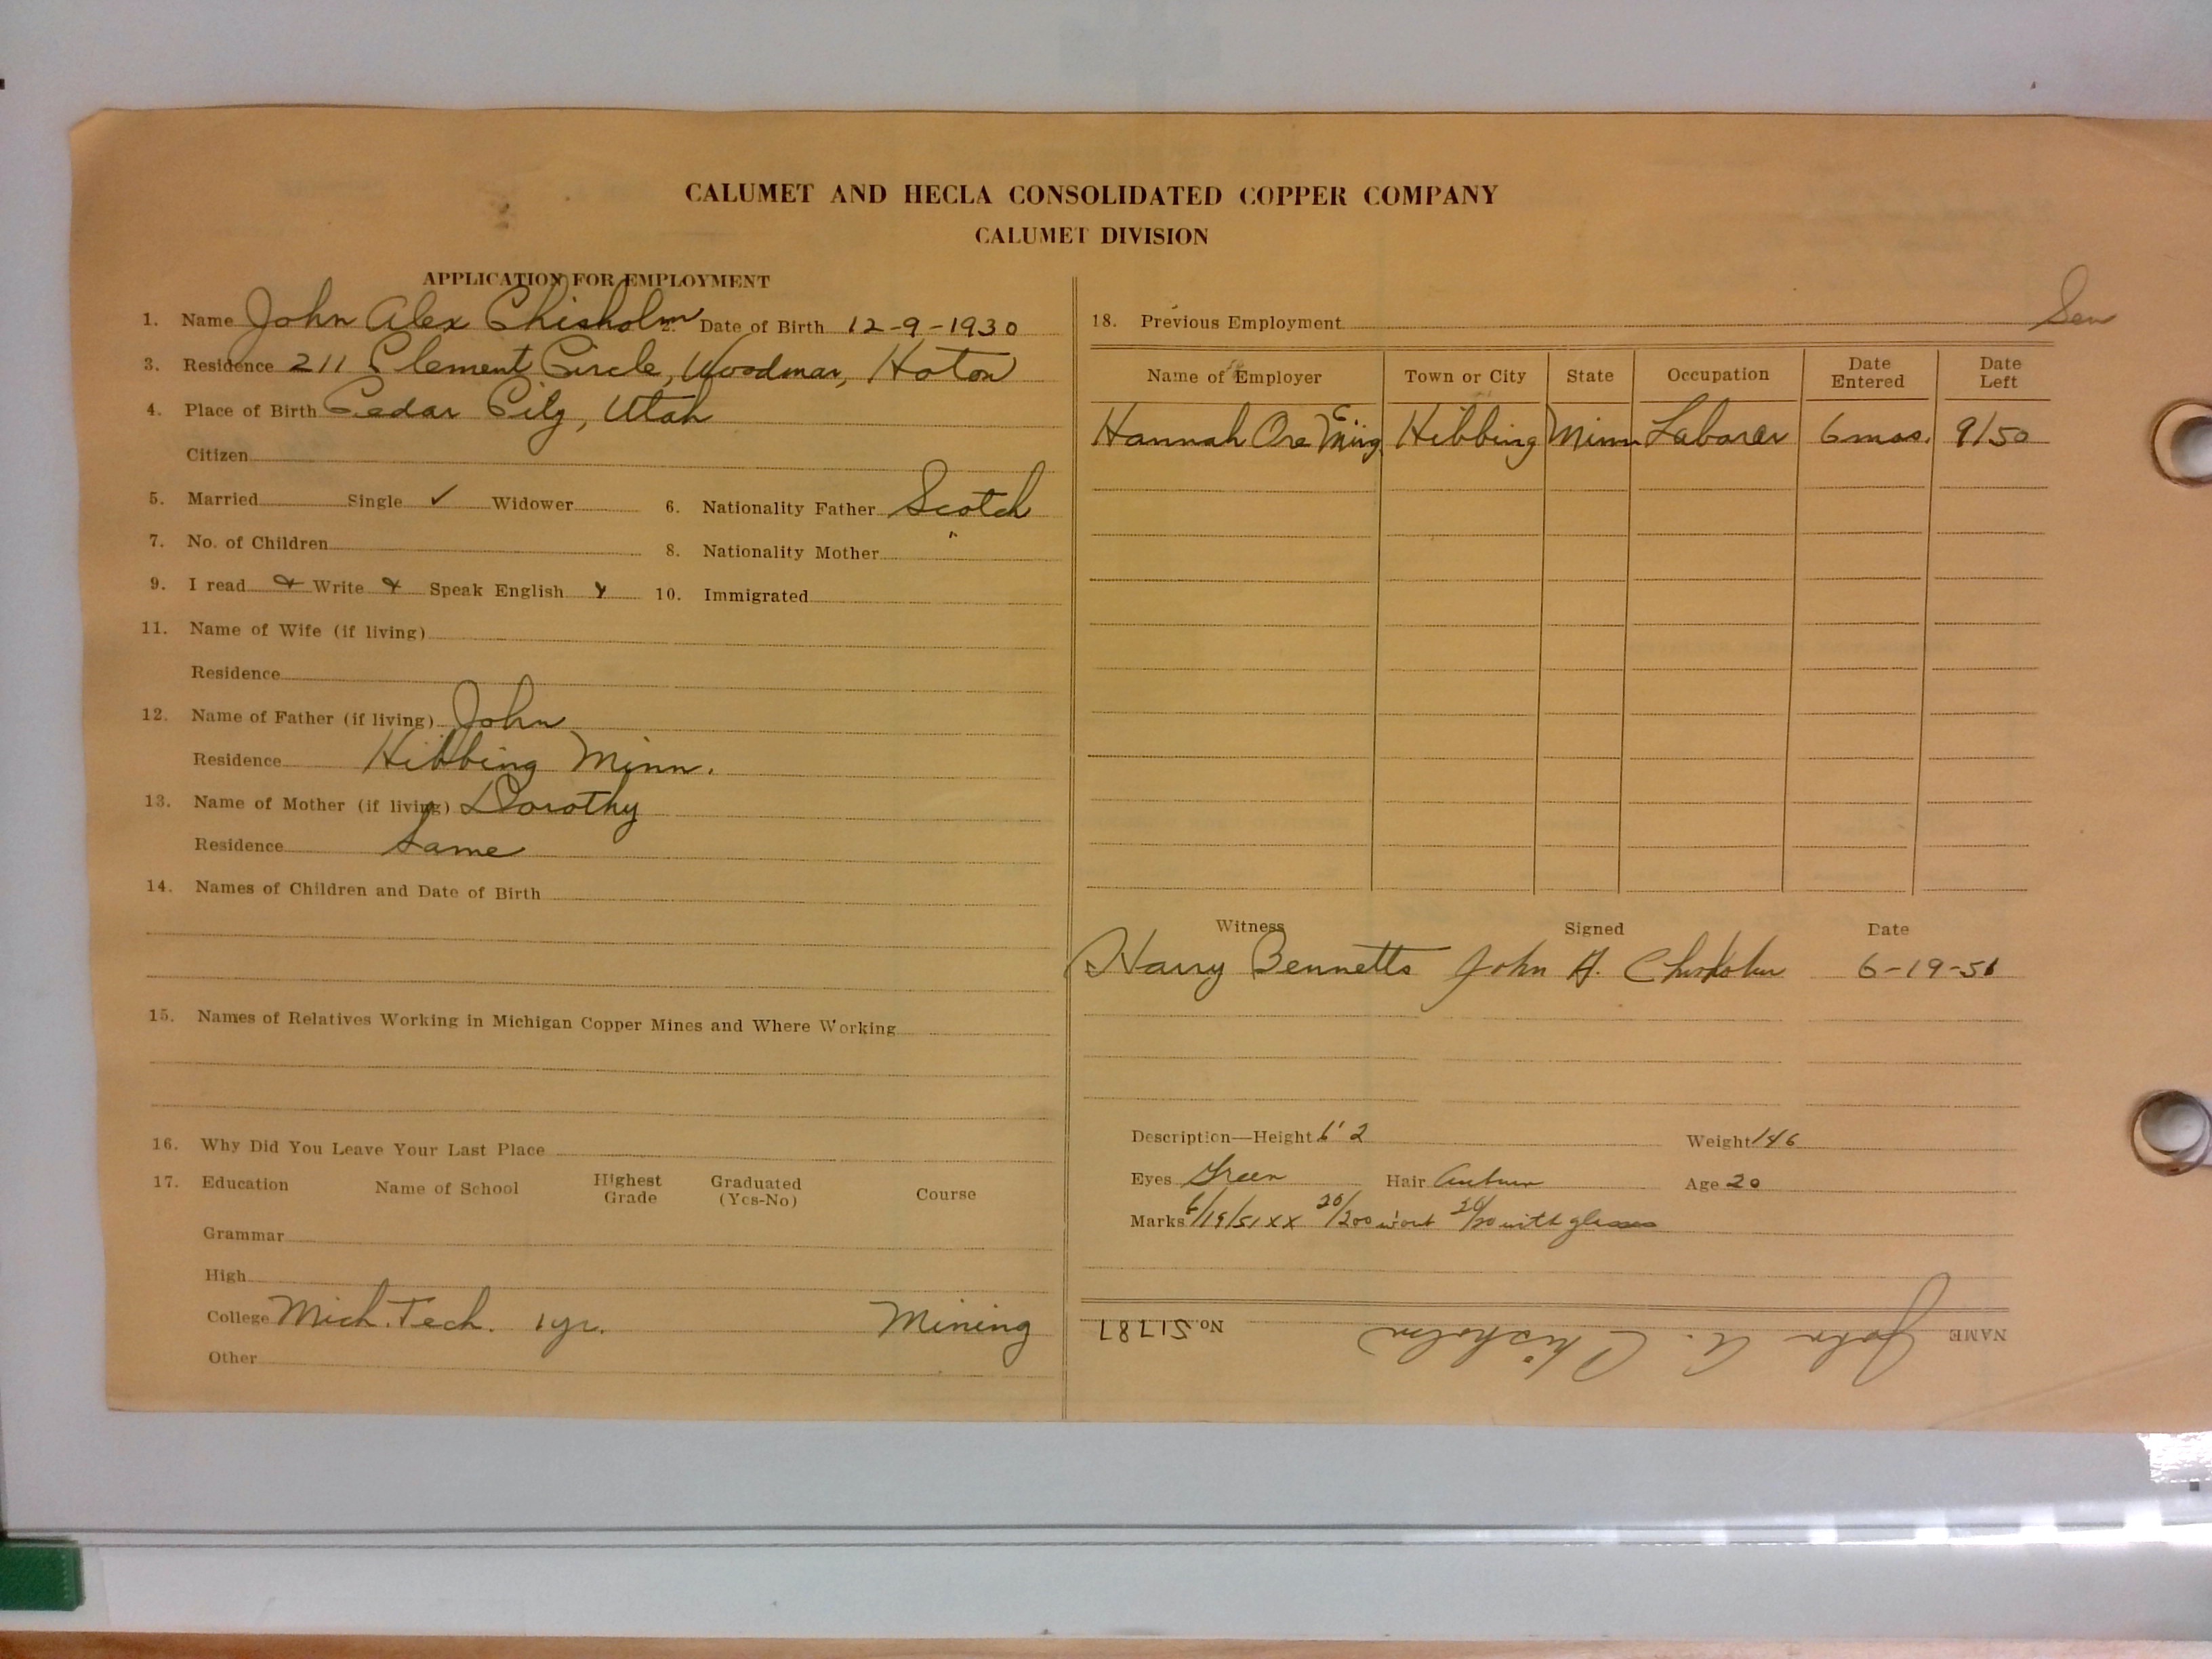 CALUMET AND HECLA CONSOLIDATED COPPER COMPANY
CALUMET DIVISION
APPLICATION FOR EMPLOYMENT
1. Name John Alex Chisholm 2. Date of Birth 12-9-1930
3. Residence 211 Clement Circle, Woodmar, Hoton
4. Place of Birth Cedar City, Utah
Citizen
5. Married Single ✓ Widower 6. Nationality Father Scotch
7. No. of Children 8. Nationality Mother "
9. I read Write Speak English y 10. Immigrated
11. Name of Wife (if living)
Residence
12. Name of Father (if living) John
Residence Hibbing Minn.
13. Name of Mother (if living) Dorothy
Residence Same
14. Names of Children and Date of Birth
15. Names of Relatives Working in Michigan Copper Mines and Where Working
16. Why Did You Leave Your Last Place
17. Education Name of School Highest Grade Graduated (Yes-No) Course
Grammar
High
College Mich. Tech. 1 yr. Mining
Other
18. Previous Employment
Name of Employer Town or City State Occupation Date Entered Date Left
Hannah Ore Hibbing Minn Laborer 6 mos. 9/50
Witness Signed Date
Harry Bennetts John A. Chisholm 6-19-51
Description—Height 6' 2 Weight 146
Eyes Green Hair Auburn Age 20
Marks 6/19/51 XX 20/200 w'out with glasses
NAME John A. Chisholm No. 51787